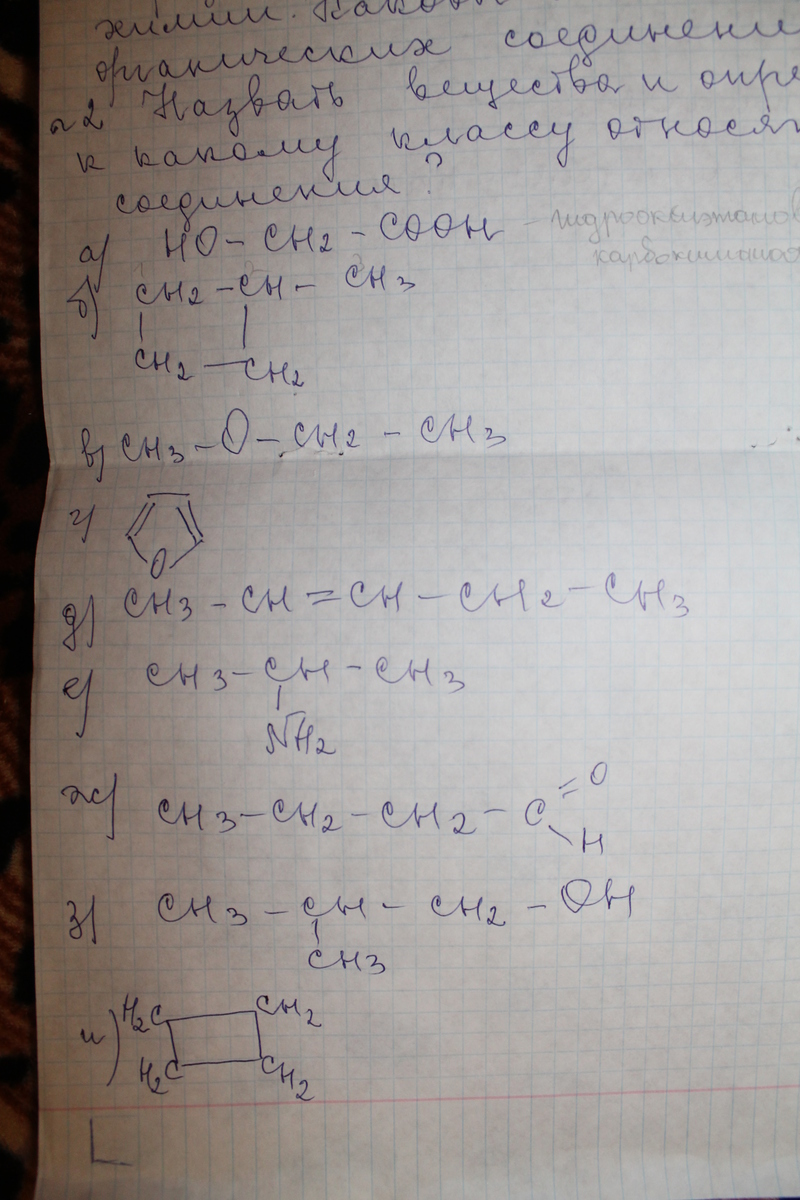 химии. Каков
органических соединени
№2 Назвать вещества и опре
к какому классу относят
соединения?
а) HO - CH2 - COOH - гидрооксиэтанов
карбоксильная
б) CH2 - CH - CH3
CH2 — CH2
в) CH3 - O - CH2 - CH3
г) O
д) CH3 - CH = CH - CH2 - CH3
е) CH3 - CH - CH3
NH2
ж) CH3 - CH2 - CH2 - C = O
H
з) CH3 - CH - CH2 - OH
CH3
и) H2C CH2
H2C CH2